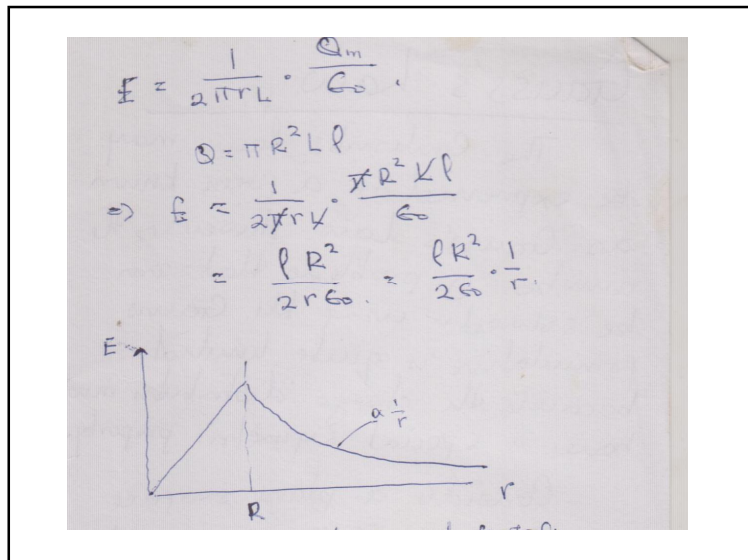 E = 1/(2πrL) · Qin/ϵ0 .
Q = πR²Lρ
=> E = 1/(2πrL) · πR²Lρ/ϵ0
= ρR²/(2rϵ0) . = ρR²/(2ϵ0) · 1/r .
E
α 1/r
R
r